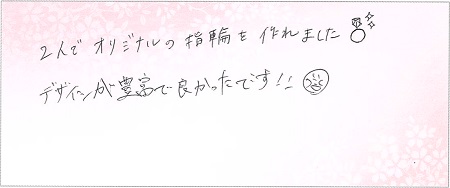 2人でオリジナルの指輪を作れました
デザインが豊富で良かったです!!